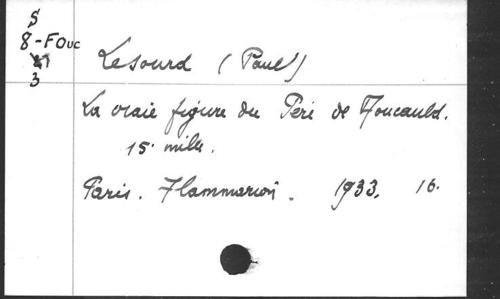 S
8-FOUC
3
Lesourd (Paul)
La vraie figure du Père de Foucauld.
15. mille.
Paris. Flammarion. 1933. 16.